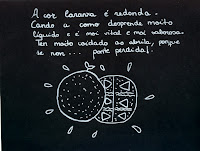 A cor laranxa é redonda.
Cando a como desprende moito
líquido e é moi vital e moi saborosa.
Ten moito coidado ao abrila, porque
se non... ponte perdida!.